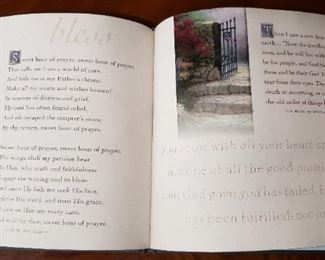 bless
Sweet hour of prayer, sweet hour of prayer,
That calls me from a world of care,
And bids me at my Father's throne,
Make all my wants and wishes known!
In seasons of distress and grief,
My soul has often found relief,
And oft escaped the tempter's snare,
By thy return, sweet hour of prayer.
Sweet hour of prayer, sweet hour of prayer,
Thy wings shall my petition bear
To Him, whose truth and faithfulness
Engage the waiting soul to bless:
And since He bids me seek His face,
Believe His word, and trust His grace,
I'll cast on Him my every care,
And wait for thee, sweet hour of prayer.
Then I saw a new heaven
earth... "Now the dwelling
and he will live with
be his people, and God himself
them and be their God
tear from their
death or mourning, or
the old order of things
You know with all your heart a
one of all the good prom
your God gave you has failed. E
has been fulfilled; not o